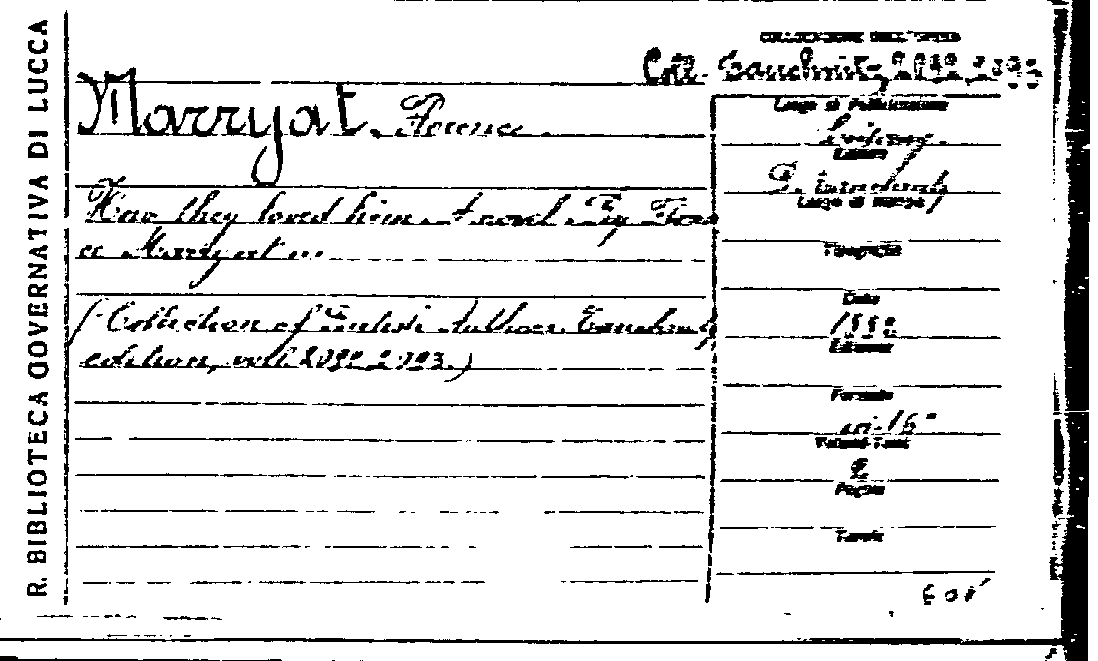 R. BIBLIOTECA GOVERNATIVA DI LUCCA
COLLOCAZIONE DELL'OPERA
Coll. Tauchnitz 2092.2093
Marryat, Florence.
How they loved him. A novel By Floren
ce Marryat ...
(Collection of British Authors. Tauchnitz
edition, voll. 2092.2093.)
Luogo di Pubblicazione
Editore
B. Tauchnitz
Luogo di stampa
Tipografia
Data
Edizione
Formato
in-16°
Volumi-Tomi
2
Pagine
Tavole